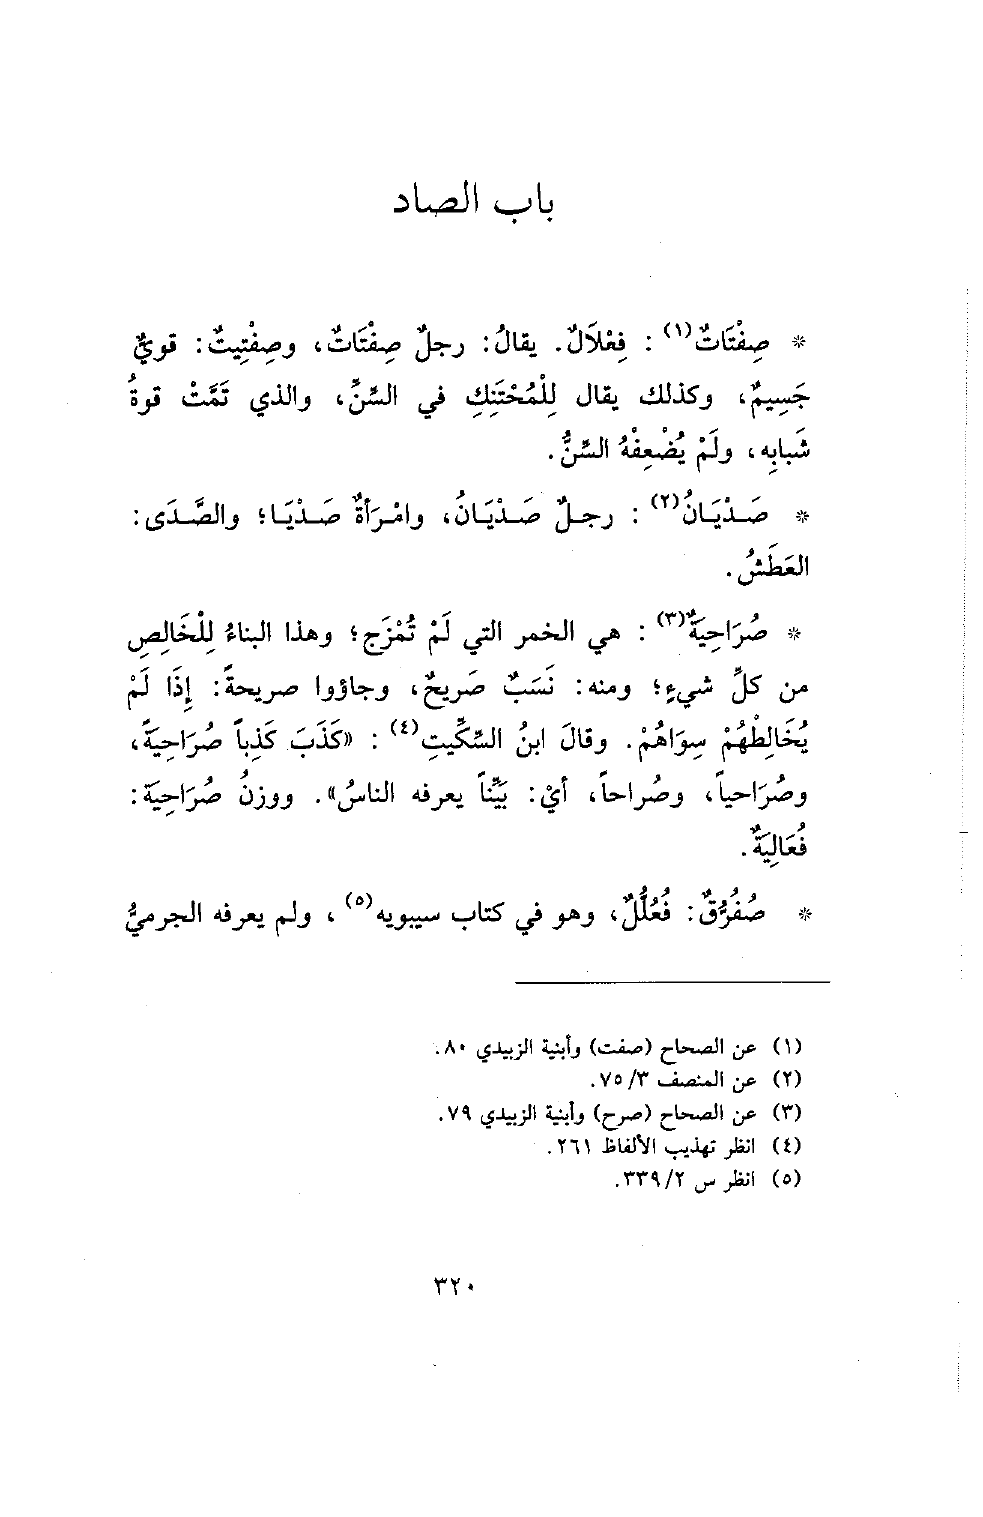 باب الصاد
* صِفْتَاتٌ(١) : فِعْلَالٌ. يقالُ: رجلٌ صِفْتَاتٌ، وصِفْتِيتٌ: قويٌّ
جَسِيمٌ، وكذلك يقال لِلْمُحْتَنِكِ في السِّنِّ، والذي تَمَّتْ قوةُ
شَبابِه، ولَمْ يُضْعِفْهُ السِّنُّ.
* صَدْيَانُ(٢) : رجلٌ صَدْيَانُ، وامْرَأةٌ صَدْيَا؛ والصَّدَى:
العَطَشُ.
* صُرَاحِيَةٌ(٣) : هي الخمر التي لَمْ تُمْزَج؛ وهذا البناءُ لِلْخَالِصِ
من كلِّ شيءٍ؛ ومنه: نَسَبٌ صَريحٌ، وجاؤوا صريحةً: إِذَا لَمْ
يُخَالِطْهُمْ سِوَاهُمْ. وقالَ ابنُ السِّكِّيتِ(٤) : «كَذَبَ كَذِباً صُرَاحِيَةً،
وصُرَاحياً، وصُراحاً، أيْ: بَيِّناً يعرفه الناسُ». ووزنُ صُرَاحِيَة:
فُعَالِيَةٌ.
* صُفُرُّقٌ: فُعُلُّلٌ، وهو في كتاب سيبويه(٥) ، ولم يعرفه الجرميُّ
(١) عن الصحاح (صفت) وأبنية الزبيدي ٨٠.
(٢) عن المنصف ٧٥/٣.
(٣) عن الصحاح (صرح) وأبنية الزبيدي ٧٩.
(٤) انظر تهذيب الألفاظ ٢٦١.
(٥) انظر س ٣٣٩/٢.
٣٢٠